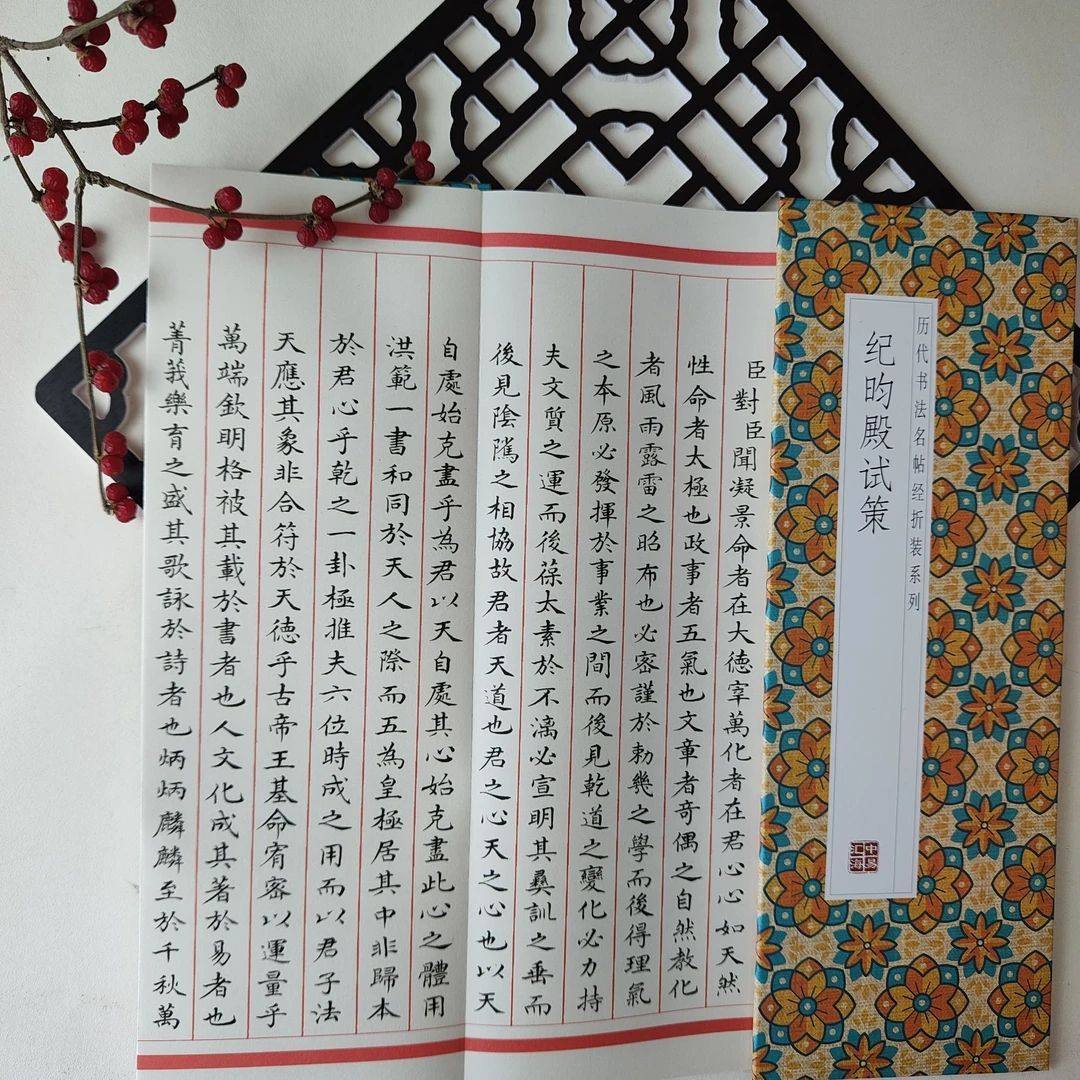 历代书法名帖经折装系列
纪昀殿试策
中易汇海
臣對臣聞凝景命者在大德宰萬化者在君心心如天然
性命者太極也政事者五氣也文章者奇偶之自然教化
者風雨露雷之昭布也必密謹於勅幾之學而後得理氣
之本原必發揮於事業之間而後見乾道之變化必力持
夫文質之運而後葆太素於不漓必宣明其彝訓之垂而
後見陰隲之相協故君者天道也君之心天之心也以天
自處始克盡乎為君以天自處其心始克盡此心之體用
洪範一書和同於天人之際而五為皇極居其中非歸本
於君心乎乾之一卦極推夫六位時成之用而以君子法
天應其象非合符於天德乎古帝王基命宥密以運量乎
萬端欽明格被其載於書者也人文化成其著於易者也
菁莪樂育之盛其歌詠於詩者也炳炳麟麟至於千秋萬